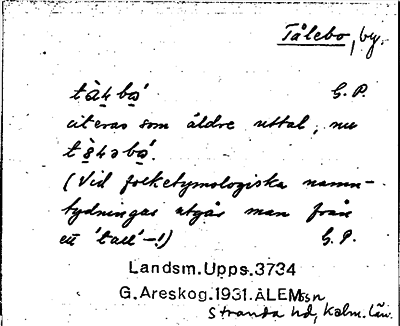 Tålebo, by.
tὰ4 bὰ́ G. P.
citeras som äldre uttal, nu
t 4əbὰ́.
(Vid folketymologiska namn-
tydningar utgår man från
ett 'tall' –!) G. P.
Landsm.Upps.3734
G.Areskog.1931.ÅLEMssn
Stranda hd, Kalm. län.